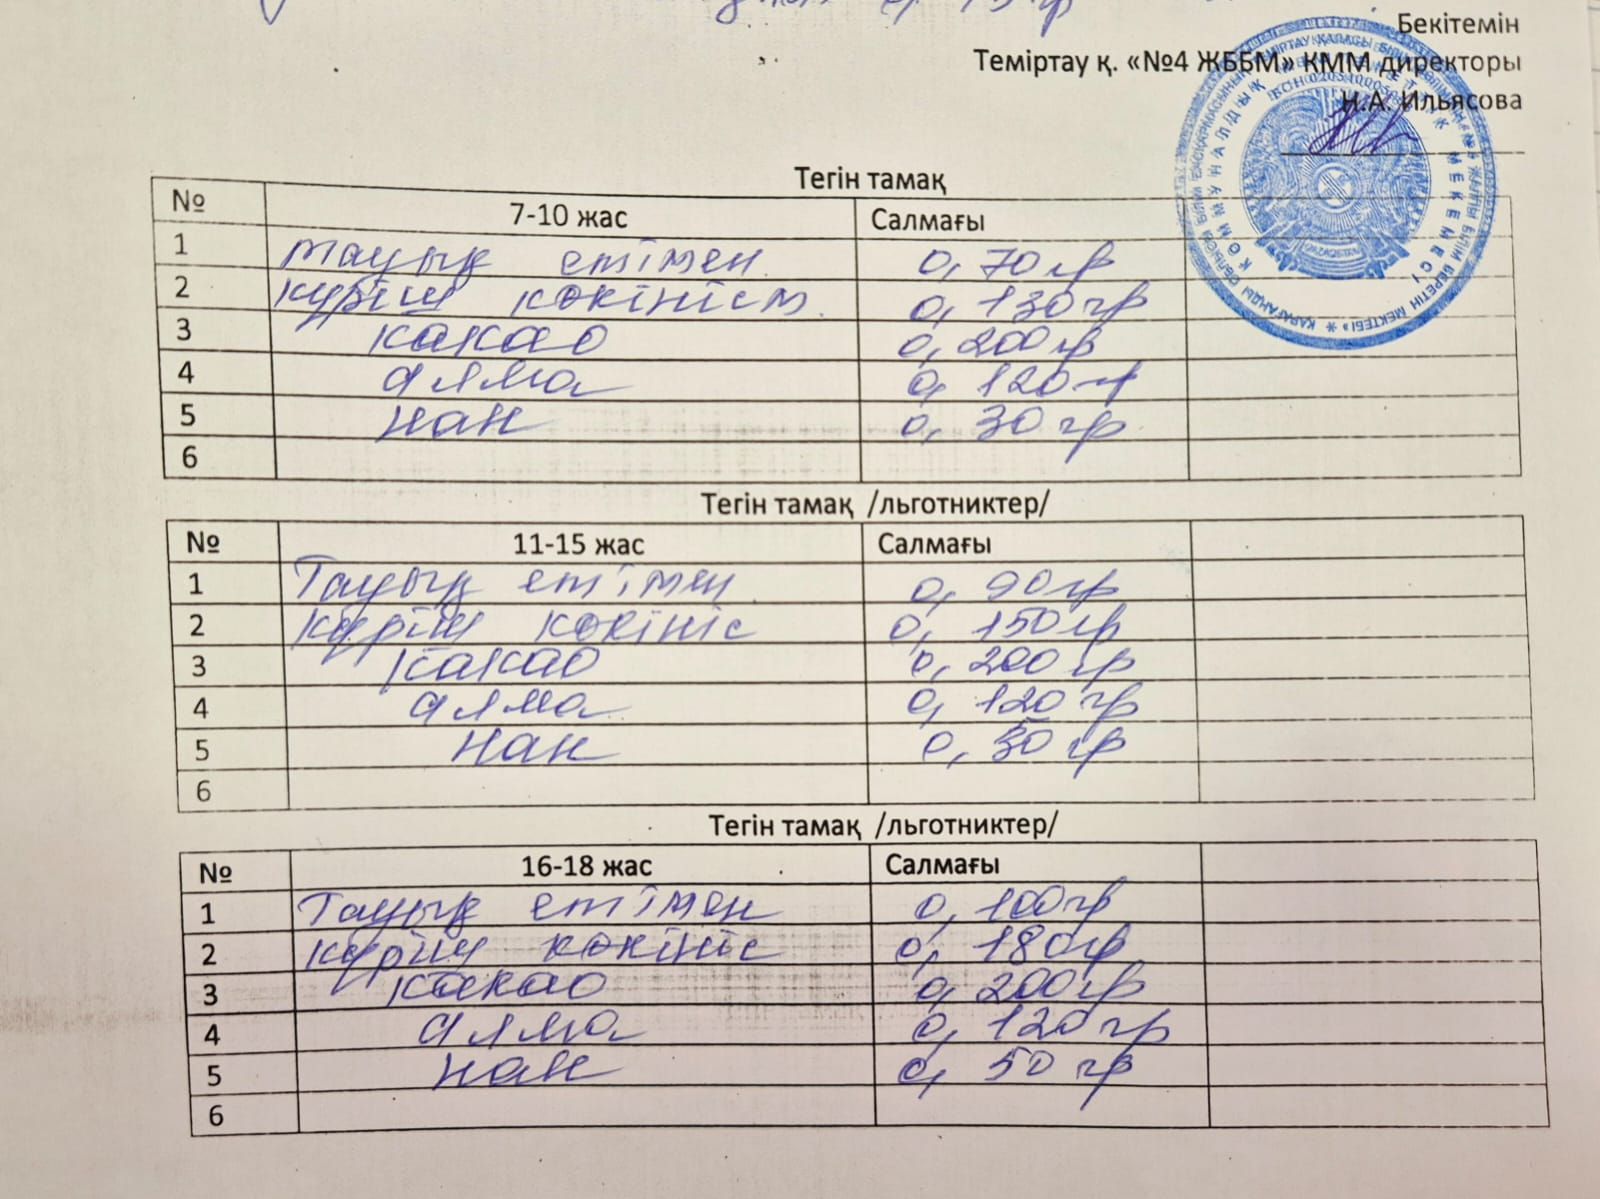 Бекітемін
Теміртау қ. «№4 ЖББМ» КММ директоры
Н.А. Ильясова
Тегін тамақ
№ 7-10 жас Салмағы
1 тауық етімен 0, 70 гр
2 күріш көкініسм 0, 130 гр
3 какао 0, 200 гр
4 алма 0, 120 гр
5 нан 0, 30 гр
6
Тегін тамақ /льготниктер/
№ 11-15 жас Салмағы
1 Тауық етімен 0, 90 гр
2 күріш көкініс 0, 150 гр
3 какао 0, 200 гр
4 алма 0, 120 гр
5 нан 0, 50 гр
6
Тегін тамақ /льготниктер/
№ 16-18 жас Салмағы
1 Тауық етімен 0, 100 гр
2 күріш көкініс 0, 180 гр
3 какао 0, 200 гр
4 алма 0, 120 гр
5 нан 0, 50 гр
6